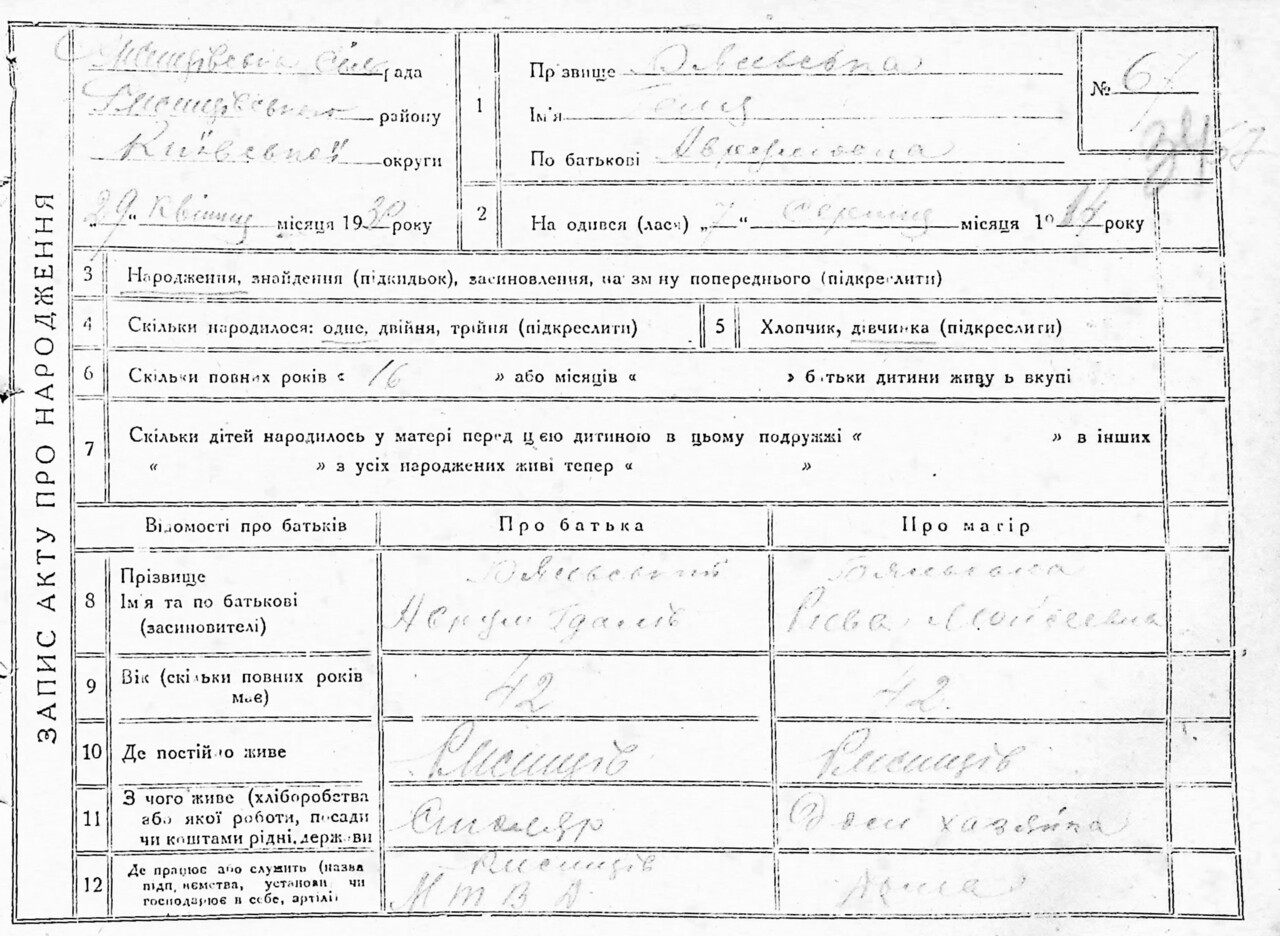 ЗАПИС АКТУ ПРО НАРОДЖЕННЯ
рада
району
Київської округи
„29“ квітня місяця 1930 року
1
Пр звище
Ім'я
По батькові Аврумовна
№ 67
34
67
2
На одився (лася) „7“ серпня місяця 1914 року
3 Народження, знайдення (підкидьок), засиновлення, на зм ну попереднього (підкреслити)
4 Скільки народилося: одне, двійня, трійня (підкреслити)
5 Хлопчик, дівчинка (підкреслити)
6 Скільки повних років « 16 » або місяців « » батьки дитини живу ь вкупі
7 Скільки дітей народилось у матері перед цією дитиною в цьому подружжі « » в інших
« » з усіх народжених живі тепер « »
Відомості про батьків
Про батька
Про матір
8 Прізвище
Ім'я та по батькові
(засиновителі)
Аврум
Рива Мойсеевна
9 Вік (скільки повних років має)
42
42
10 Де постійно живе
11 З чого живе (хліборобства
або якої роботи, посади
чи коштами рідні, держави
Столяр
Дом хазяйка
12 Де працює або служить (назва
підп, иємства, установи чи
господарює в себе, артілі)
Дома